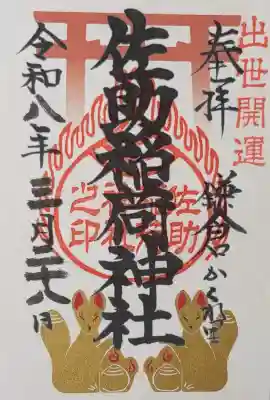 出世開運
奉拝
鎌倉かくれ里
佐助稲荷神社
佐助稲荷神社之印
令和八年三月二十八日